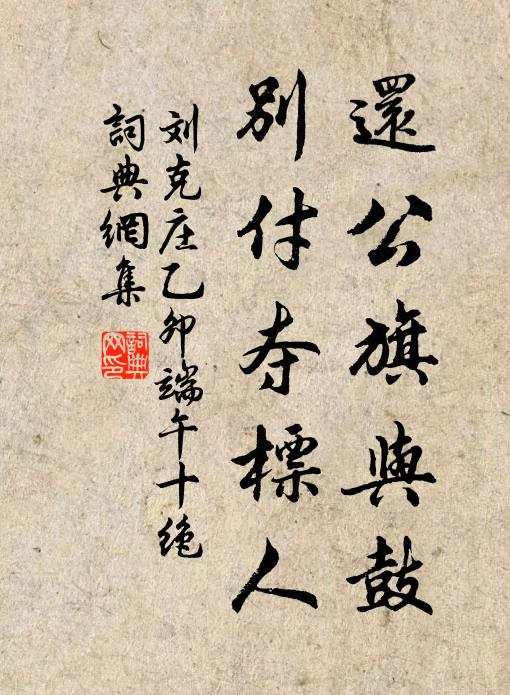 還公旗與鼓
別付夺標人
刘克庄乙卯端午十绝
詞典網集
詞典
网印